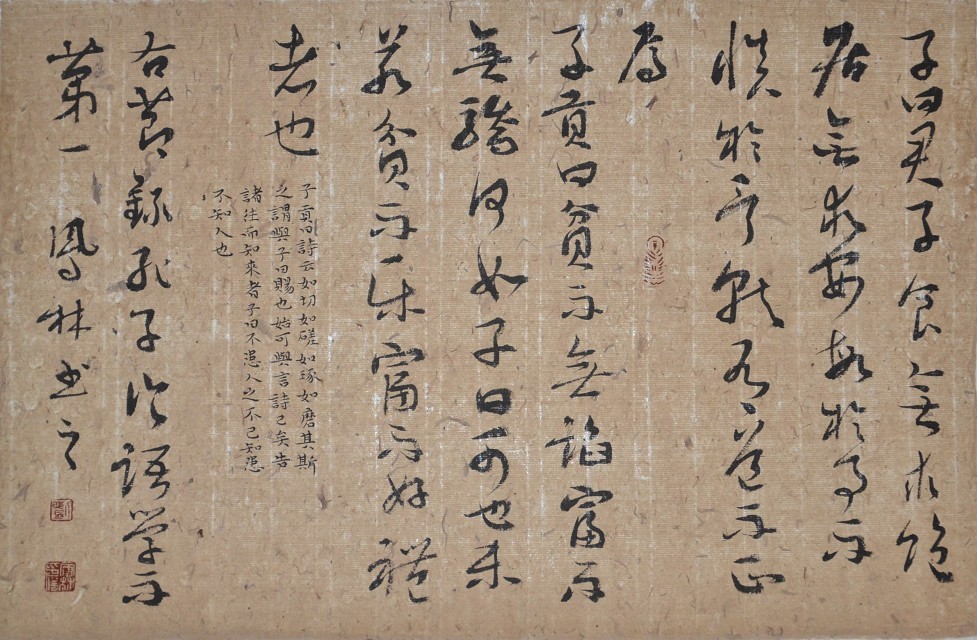 子曰君子食無求飽
居無求安敏於事而
慎於言就有道而正
焉
子貢曰貧而無諂富而
無驕何如子曰可也未
若貧而樂富而好禮
者也
子貢曰詩云如切如磋如琢如磨其斯
之謂與子曰賜也始可與言詩已矣告
諸往而知來者子曰不患人之不己知患
不知人也
右節錄孔子论語学而
第一鳳林书之